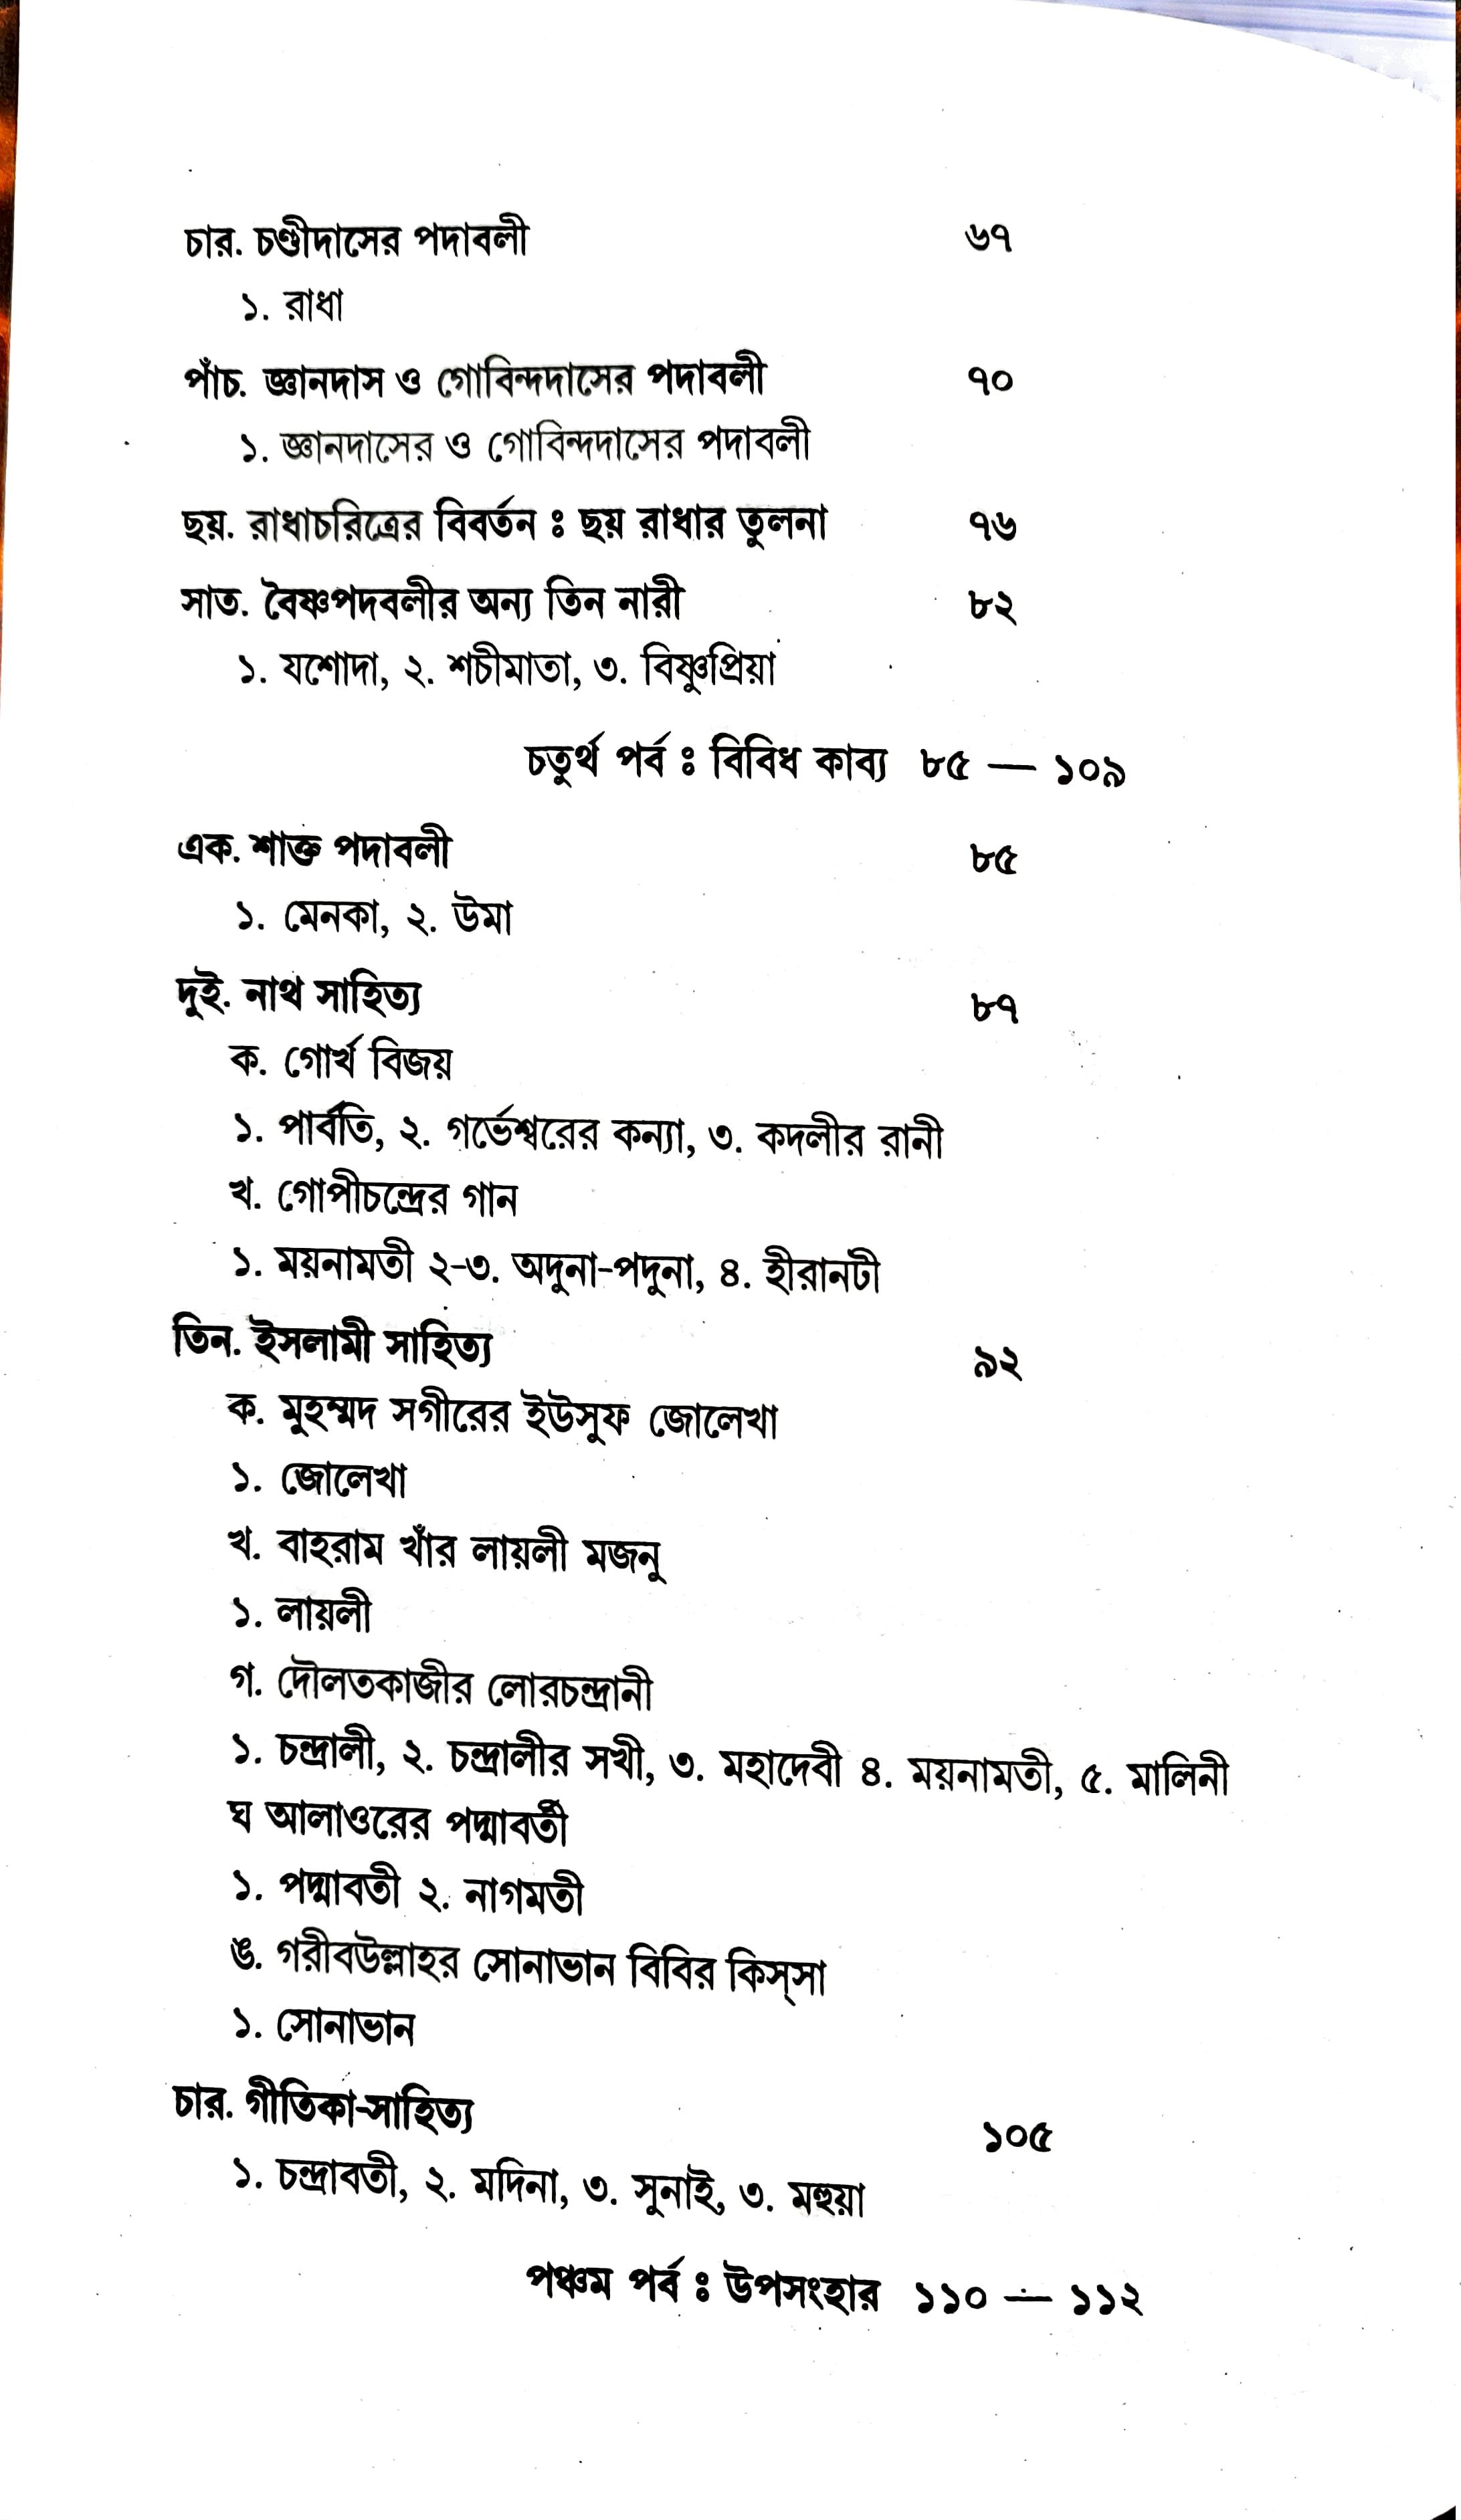 চার. চণ্ডীদাসের পদাবলী ৬৭
১. রাধা
পাঁচ. জ্ঞানদাস ও গোবিন্দদাসের পদাবলী ৭০
১. জ্ঞানদাসের ও গোবিন্দদাসের পদাবলী
ছয়. রাধাচরিত্রের বিবর্তন ঃ ছয় রাধার তুলনা ৭৬
সাত. বৈষ্ণপদবলীর অন্য তিন নারী ৮২
১. যশোদা, ২. শচীমাতা, ৩. বিষ্ণুপ্রিয়া
চতুর্থ পর্ব ঃ বিবিধ কাব্য ৮৫ — ১০৯
এক. শাক্ত পদাবলী ৮৫
১. মেনকা, ২. উমা
দুই. নাথ সাহিত্য ৮৭
ক. গোর্খ বিজয়
১. পার্বতি, ২. গর্ভেশ্বরের কন্যা, ৩. কদলীর রানী
খ. গোপীচন্দ্রের গান
১. ময়নামতী ২-৩. অদুনা-পদুনা, ৪. হীরানটী
তিন. ইসলামী সাহিত্য ৯২
ক. মুহম্মদ সগীরের ইউসুফ জোলেখা
১. জোলেখা
খ. বাহরাম খাঁর লায়লী মজনু
১. লায়লী
গ. দৌলতকাজীর লোরচন্দ্রানী
১. চন্দ্রালী, ২. চন্দ্রালীর সখী, ৩. মহাদেবী ৪. ময়নামতী, ৫. মালিনী
ঘ আলাওরের পদ্মাবর্তী
১. পদ্মাবতী ২. নাগমতী
ঙ. গরীবউল্লাহর সোনাভান বিবির কিস্‌সা
১. সোনাভান
চার. গীতিকা-সাহিত্য ১০৫
১. চন্দ্রাবতী, ২. মদিনা, ৩. সুনাই, ৩. মহুয়া
পঞ্চম পর্ব ঃ উপসংহার ১১০ — ১১২